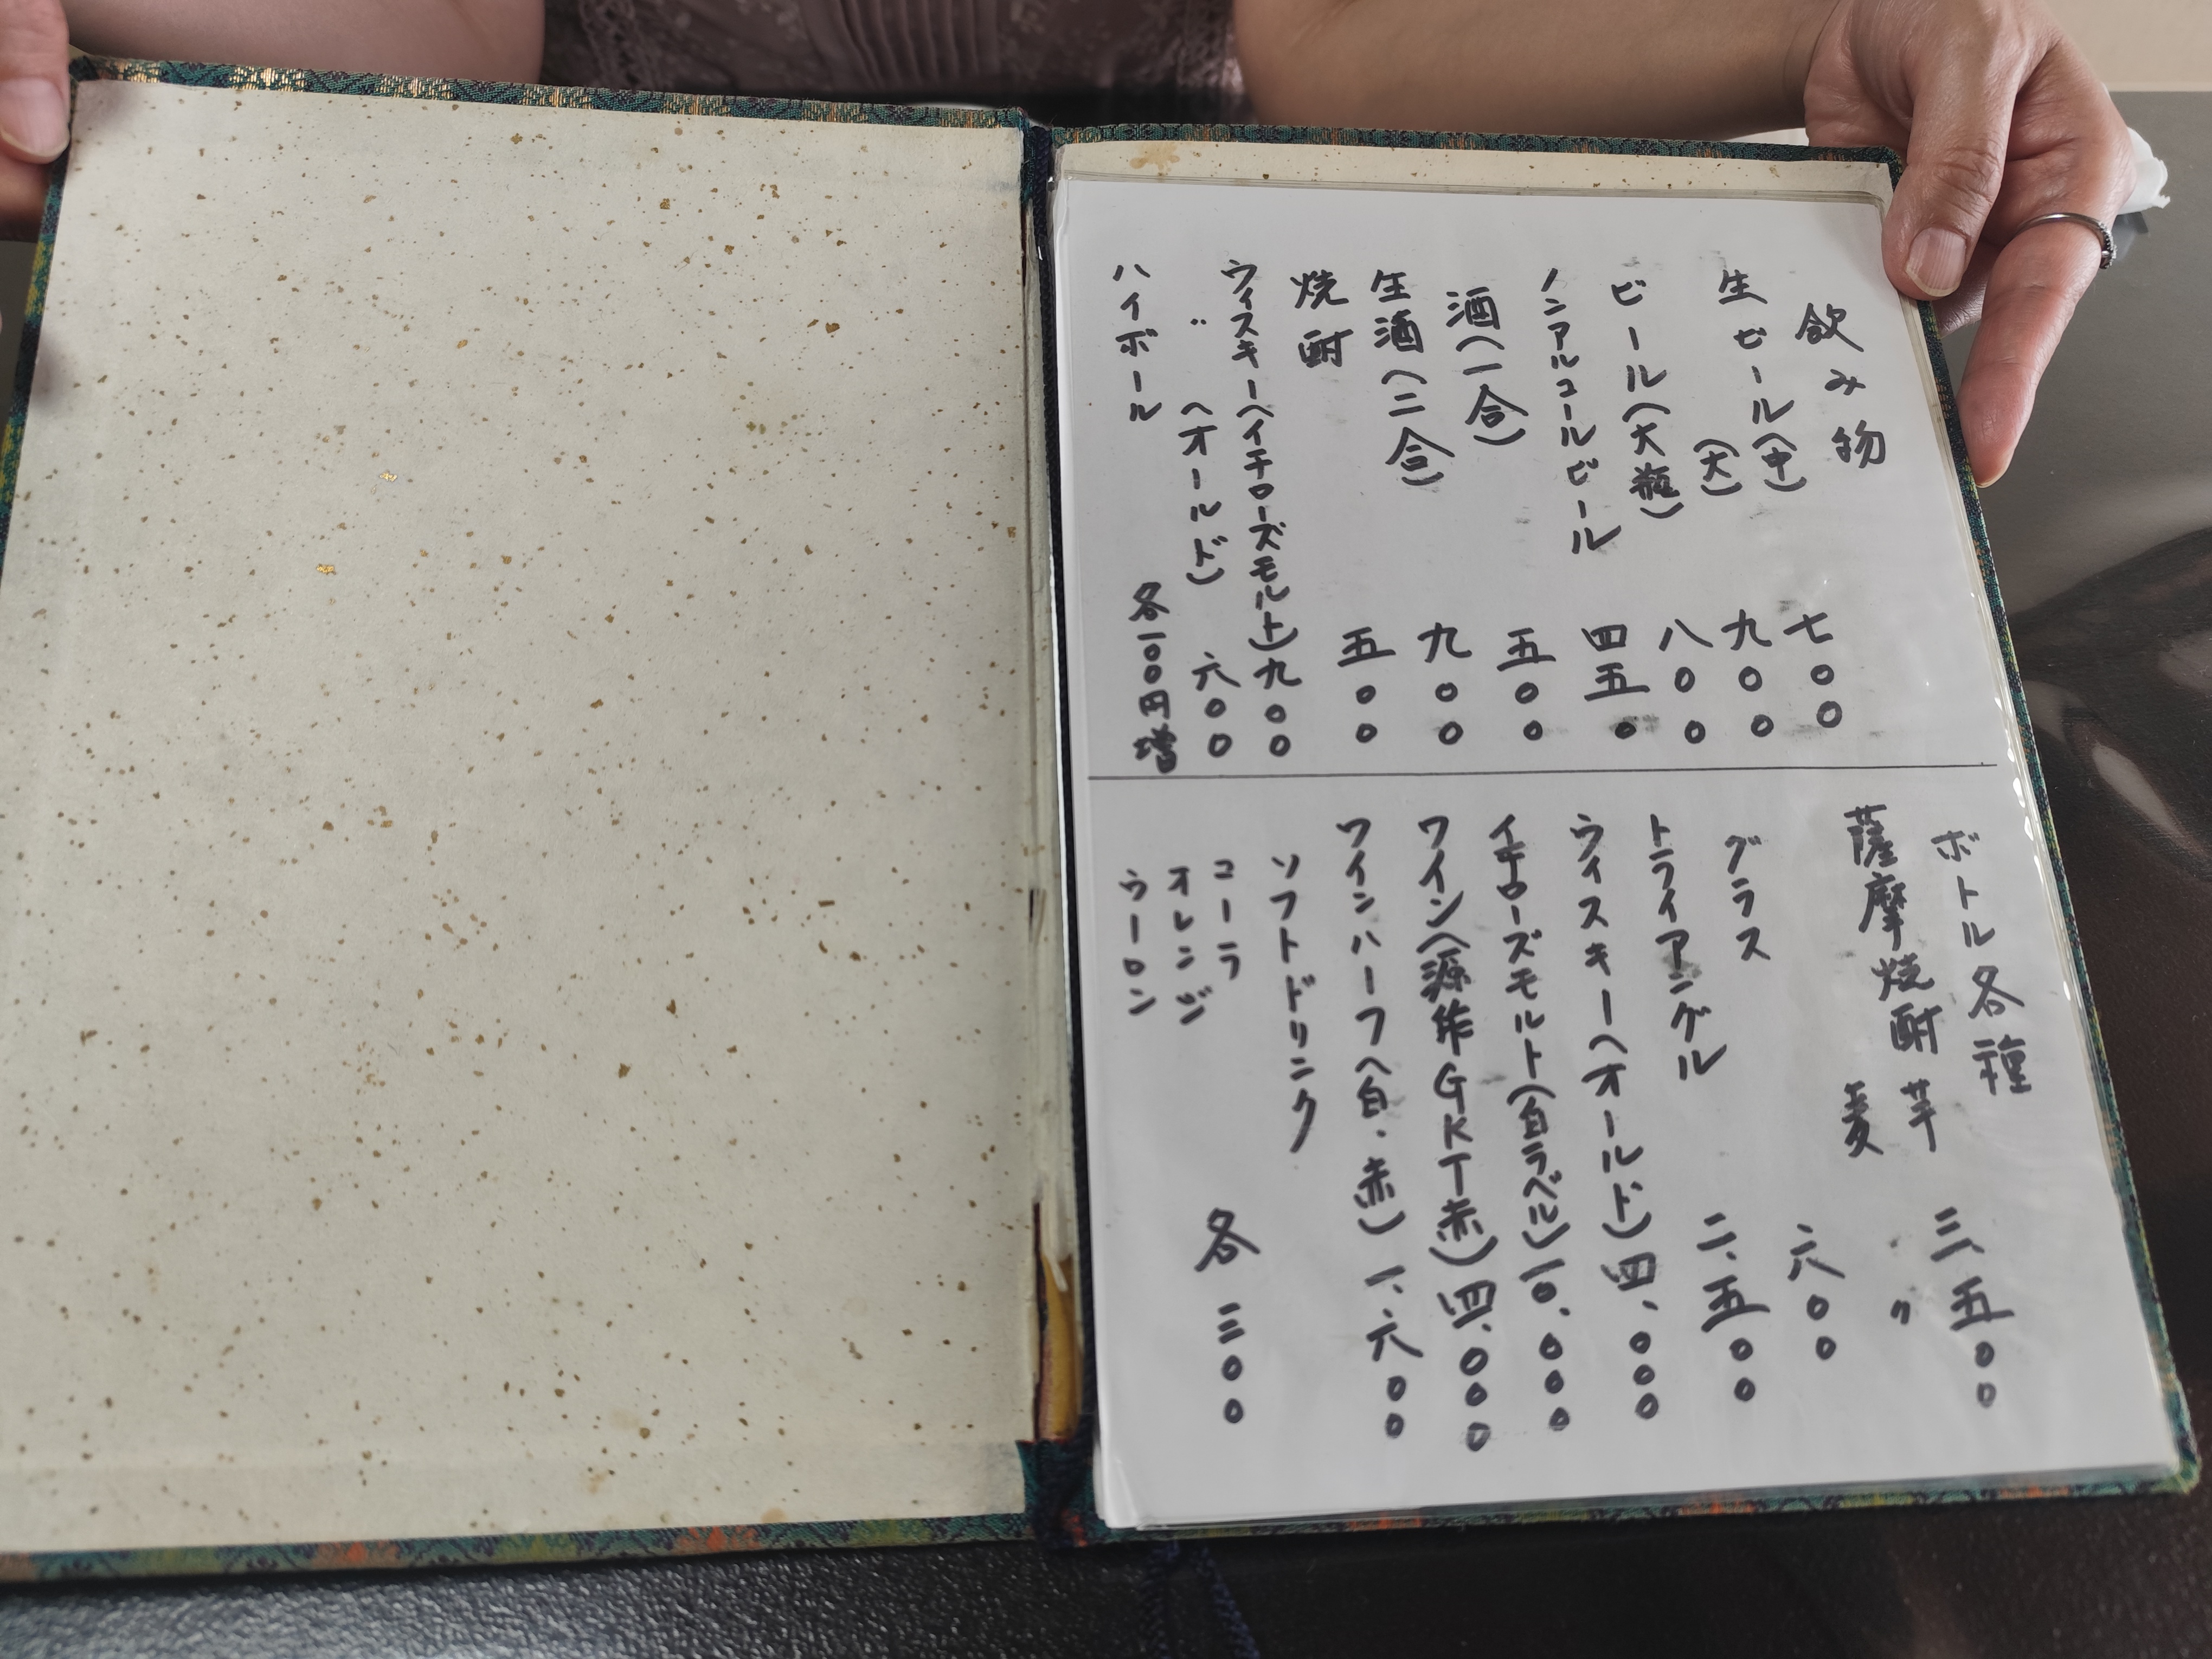 飲み物
生ビール(中) 七〇〇
(大) 九〇〇
ビール(大瓶) 八〇〇
ノンアルコールビール 四五〇
酒(一合) 五〇〇
生酒(二合) 九〇〇
焼酎 五〇〇
ウィスキー(イチローズモルト) 九〇〇
〃 (オールド) 六〇〇
ハイボール 各一〇〇円増
ボトル各種
薩摩焼酎 芋 三、五〇〇
麦 〃
グラス 六〇〇
トライアングル 二、五〇〇
ウィスキー(オールド) 四、〇〇〇
イチローズモルト(白ラベル) 一〇、〇〇〇
ワイン(源作GKT赤) 四、〇〇〇
ワインハーフ(白・赤) 一、六〇〇
ソフトドリンク
コーラ 各三〇〇
オレンジ
ウーロン